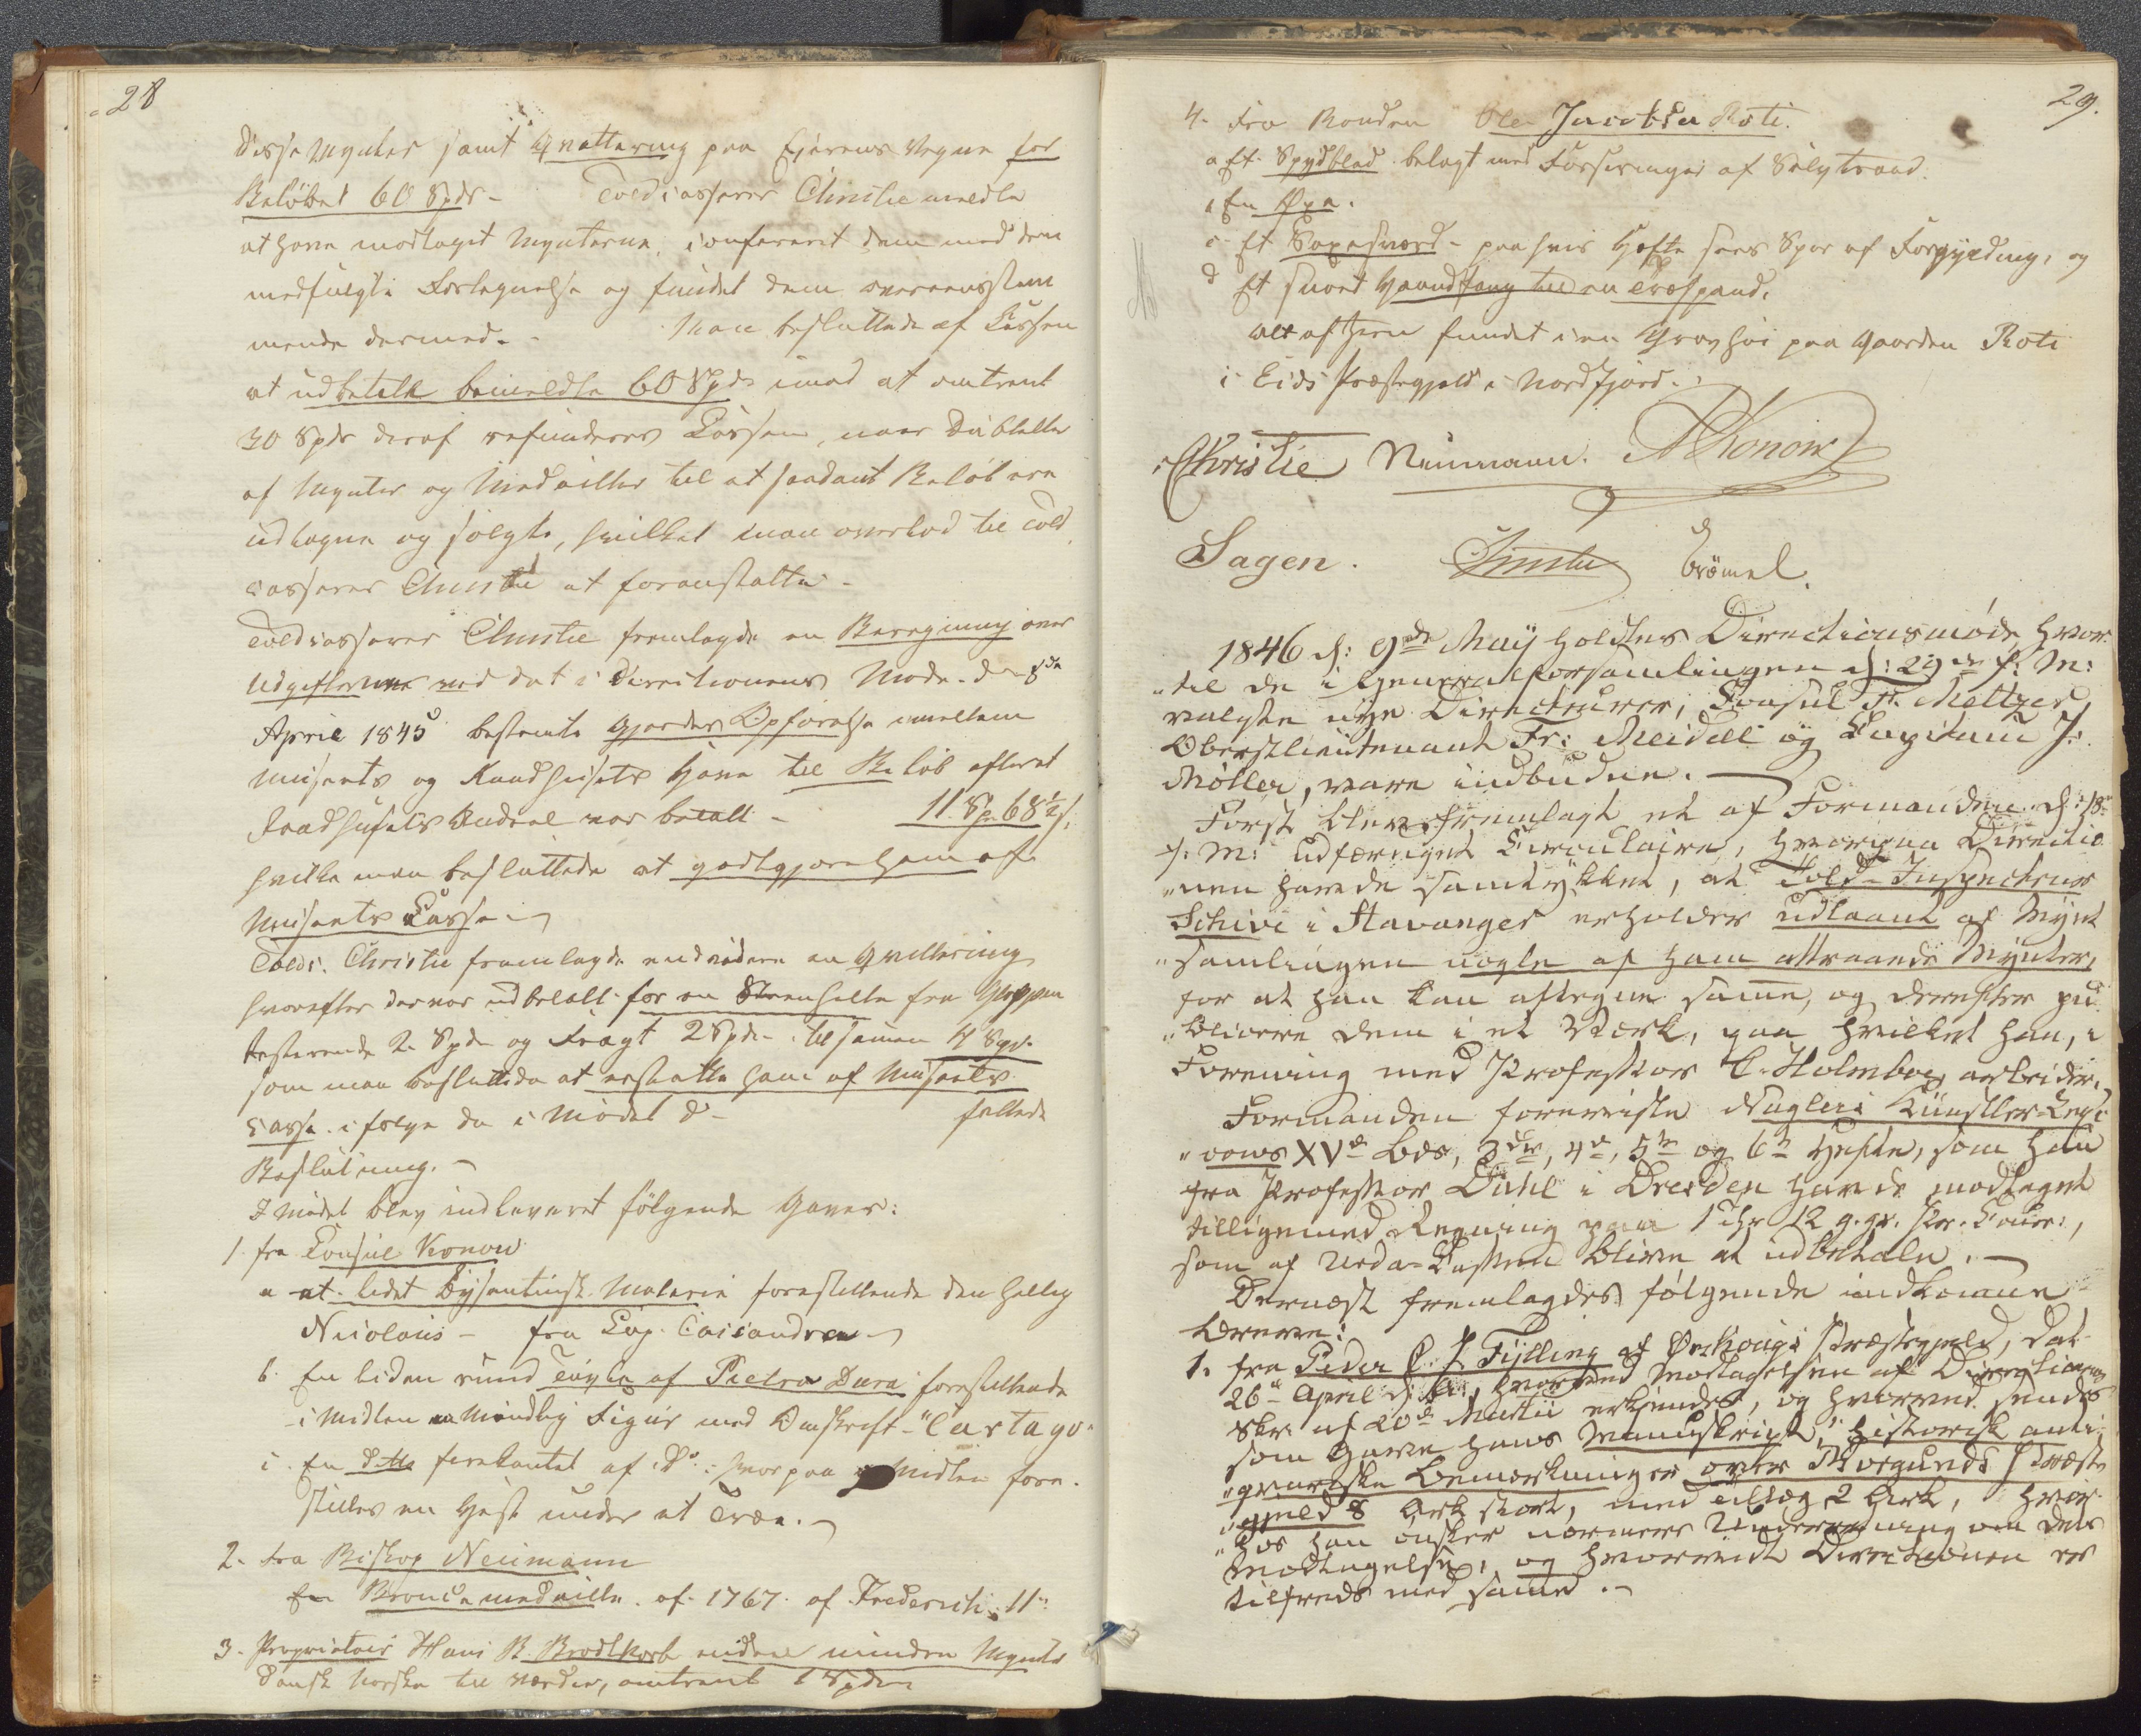 28
disse Mynter samt Qvittering paa Eierens Vegne for
Beløbet 60 Spdr - Toldcasserer Christie meldte
at have modtaget Mynterne, confereret dem med den
medfulgte Fortegnelse og fundet dem overeensstem
mende dermed. - Man besluttede af Cassen
at udbetale bemeldte 60 Spdr imod at omtrent
30 Spdr deraf refunderes Cassen, naar Dubletter
af Mynter og Medailler til et saadant Beløb ere
udtagne og solgte, hvilket man overlod til Told
casserer Christie at foranstalte -
Toldcasserer Christie fremlagde en Beregning over
Udgifterne ved det i Directionens Møde d 8de
April 1845 bestemte Gjerdes Opførelse imellem
Museets og Raadhusets Have til Beløb efterat
Raadhusets Andeel var betalt - 11 Sp 68½ s.
hvilke man besluttede at godtgjøre ham af
Museets Casse -
Toldc. Christie fremlagde endvidere en Qvittering
hvorefter der var udbetalt for en Steenhelle fra Gloppen
resterende 2 Spdr og Fragt 2 Spdr - tilsamen 4 Spd.
som man besluttede at erstatte ham af Museets
Casse i følge den i Mødet d - fattede
Beslutning. -
I Mødet blev indleveret følgende Gaver:
1 fra Consul Konow
a et lidet Bysantinsk Malerie forestillende den hellig
Nicolaus - fra Cap.
b. En liden rund Tavle af Pietra Dura forestillende
i Midten en Mandlig Figur med Omskrift - "Cartago"
c. En ditto firekantet af Do: hvorpaa i Midten fore-
stilles en Hest under et Træe. -
2. fra Biskop Neumann
En Bronce medaille af 1767 af Frederich II:
3. Proprietair Hans B. Brodtkorb endeel mindre Mynter
Dansk Norske til Værdie, omtrent 1 Spdr
29.
4. Fra Bonden Ole Jacobsen Roti.
a Et Spydblad belagt med Forsiringer af Sølvtraad.
b En Øxe.
c Et Saxesværd - paa hvis Hefte sees Spor af Forgyldning, og
d Et snoet Haandfang til en Træspand.
alt af Jern fundet i en Gravhøi paa Gaarden Roti
i Eids Præstegjeld i Nordfjord.
Christie Neumann. A Konow
Sagen. Christie Grömel.
1846 d: 9de May holdtes Directionsmøde, hvor
"til de i Generalforsamlingen d: 29de f: M:
valgte nye Directeurer, Consul F. Meltzer,
Oberstlieutenant Fr: Meidell og Capitain J:
Møller, vare indbudne. -
Først blev fremlagt et af Formanden d: 18
f: M: udfærdiget Circulaire, hvorpaa Directio
"nen havde samtykket, at Told-Inspecteur
Schive i Stavanger erholder udlaant af Mynt
"samlingen nogle af ham attraaede Mynter,
for at han kan aftegne samme, og derefter pu
"blicere dem i et Værk, paa hvilket han, i
Forening med Professor C. Holmboe arbeider.
Formanden foreviste Naglers Künstler-Lexi
"cons XVde Bds, 3die, 4de, 5te og 6te Hefte, som han
fra Professor Dahl i Dresden havde modtaget
tilligemed Regning paa 1 Thr 12 g.gr. Pr. Cour.,
som af Urda-Cassen bliver at udbetale. -
Dernæst fremlagdes følgende indkomne
Breve:
1. fra Peder C. J. Fylling af Ørskougs Præstegjeld, dat
26de April d: A:, hvorved Modtagelsen af Directionens
Skr: af 20de Martii erkjendes, og hvorved sendes
som Gave hans Manuskript, "Historisk anti-
"qvariske Bemærkninger over Borgunds Præste
"gjeld 8 Ark stort, med Tillæg 2 Ark, hvor-
"hos han ønsker nærmere Underretning om dets
Modtagelse, og hvorvidt Directionen er
tilfreds med samme. -